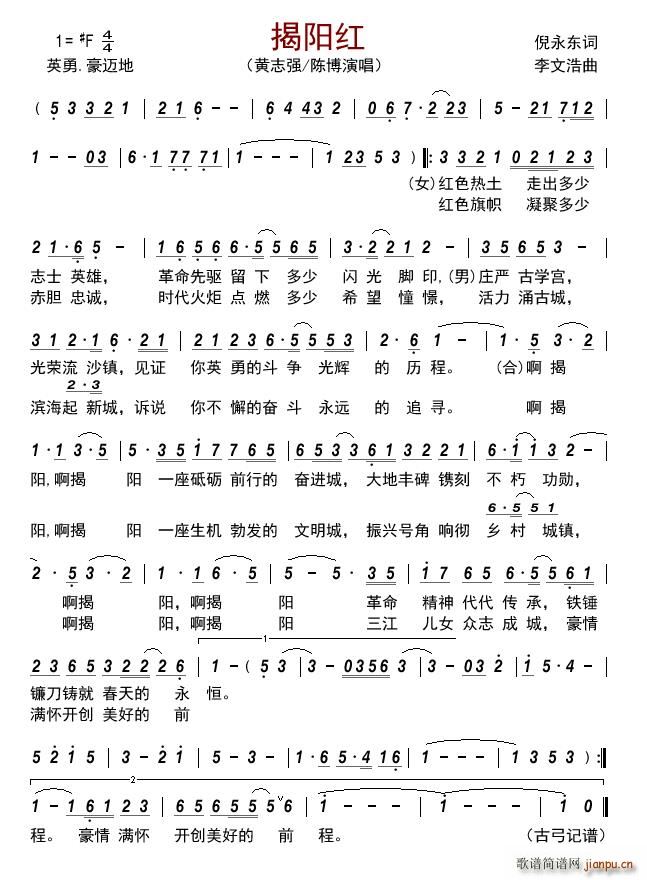 揭阳红
1= ♯F 4/4
英勇.豪迈地
（黄志强/陈博演唱）
倪永东词
李文浩曲
( 5 3 3 2 1 | 2 1 6 - - | 6 1 2 2 1 6 | 0 6 7 · 2 2 3 | 5 - - 2 1 7 1 2 |
1 - - 0 3 | 6 · 1 7 7 7 1 | 1 - - - | 1 2 3 5 3 ) ‖: 3 3 2 1 0 2 1 2 3 |
(女)红色热土 走出多少
红色旗帜 凝聚多少
2 1 · 6 5 - | 1 6 5 6 6 · 5 5 6 5 | 3 · 2 2 1 2 - | 3 5 6 5 3 5 |
志士 英雄， 革命先驱 留 下 多少 闪 光 脚 印，(男)庄严 古学宫，
赤胆 忠诚， 时代火炬 点 燃 多少 希 望 憧 憬， 活力 涌古城，
3 1 2 · 1 6 · 2 1 | 2 1 2 3 6 · 5 3 5 | 2 · 6 1 - | 1 - · 5 3 |
光荣流 沙镇，见证 你英 勇的斗 争 光辉 的 历 程。 (合)啊 揭
2 · 3
滨海起 新城，诉说 你不 懈的奋 斗 永远 的 追 寻。 啊 揭
1 · 1 3 · 5 | 5 · 3 5 1 7 7 6 5 | 6 5 3 5 3 6 1 3 2 2 1 | 6 · 1 1 3 2 - |
阳，啊揭 阳 一座砥砺 前行的 奋进城，大地丰碑 镌刻 不 朽 功勋，
6 · 5 5 1
阳，啊揭 阳 一座生机 勃发的 文明城，振兴号角 响彻 乡 村 城镇，
2 · 5 3 · 2 | 1 - 5 · 1 | 5 - 5 · 3 5 | 1 7 6 5 6 · 5 5 6 1 |
啊揭 阳，啊揭 阳 革命 精神 代代 传 承，铁锤
啊揭 阳，啊揭 阳 三江 儿女 众志 成 城，豪情
1
2 3 6 5 3 2 2 2 6 | 1 - - ( 5 3 | 3 - 0 3 5 6 3 | 3 - - 0 2 | 1 5 · 4 |
镰刀铸就 春天的 永 恒。
满怀开创 美好的 前
5 2 1 5 | 3 - 2 1 | 5 - 3 - | 1 6 5 · 4 1 6 | 1 - - - | 1 3 5 3 ) :‖
2
1 - 1 6 1 2 3 | 5 6 5 6 5 5 5 6 | 1 - - - | 1 - - - | 1 0 ‖
程。 豪情 满怀 开创美好的 前 程。 （古弓记谱）
歌谱简谱网
jianpu.cn